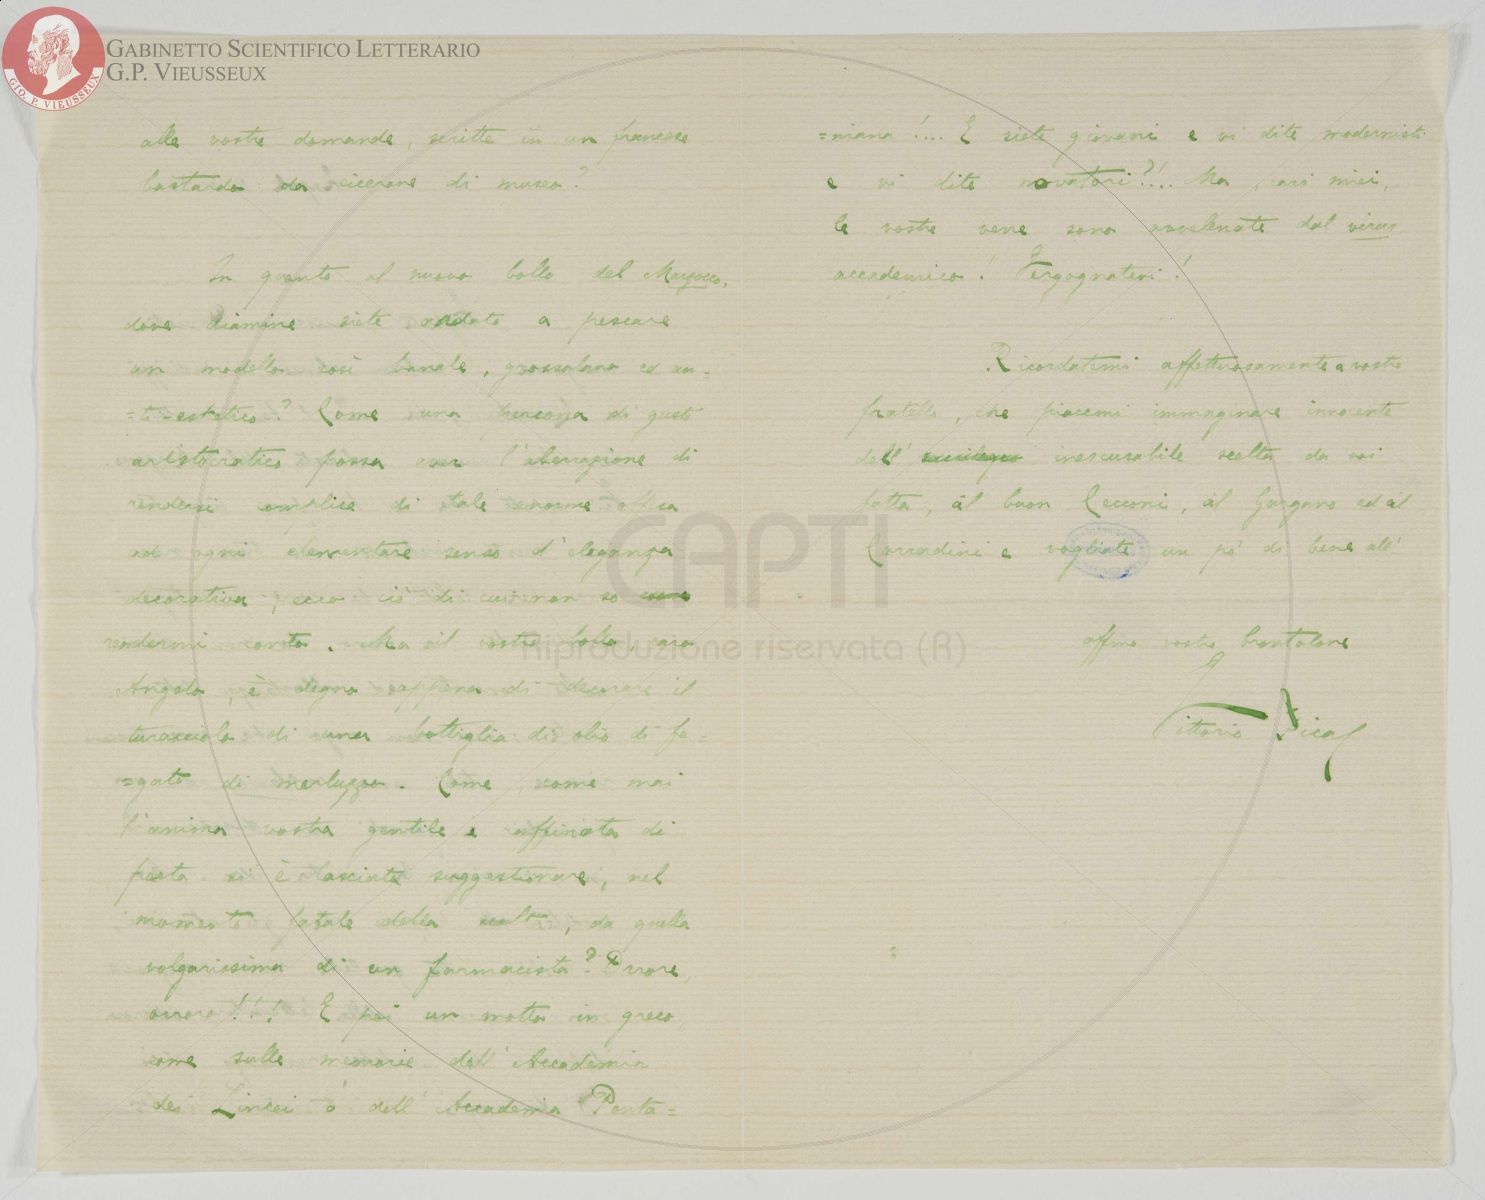 GABINETTO SCIENTIFICO LETTERARIO
G.P. VIEUSSEUX
GIO. P. VIEUSSEUX
alle vostre domande, scritte in un francese
bastardo da cicerone di museo?
In quanto al nuovo bollo del Marzocco,
dove diamine siete andato a pescare
un modello così banale, grossolano ed an=
=ti-estetico? Come una persona di gusto
aristocratico possa aver l'aberrazione di
rendersi complice di tale enorme offesa
ad ogni elementare senso d'eleganza
decorativa, ecco ciò di cui non so
rendermi conto. Ma il vostro bollo, caro
Angelo, è degno appena di decorare il
turacciolo di una bottiglia di olio di fe=
=gato di merluzzo. Come, come mai
l'anima vostra gentile e raffinata di
poeta si è lasciata suggestionare, nel
momento fatale della scelta, da quella
volgarissima di un farmacista? Orrore,
orrore!!! E poi un motto in greco,
come sulle memorie dell'Accademia
dei Lincei o dell'Accademia Ponta=
=niana!... E siete giovani e vi dite modernisti
e vi dite novatori?!.. Ma, cari miei,
le vostre vene sono avvelenate dal virus
accademico! Vergognatevi!
Ricordatemi affettuosamente a vostro
fratello, che piacemi immaginare innocente
dell' inescusabile scelta da voi
fatta, al buon Cecconi, al Gargano ed al
Corradini e vogliate un po' di bene all'
affmo vostro brontolone
Vittorio Pica
CAPTI
Riproduzione riservata (R)